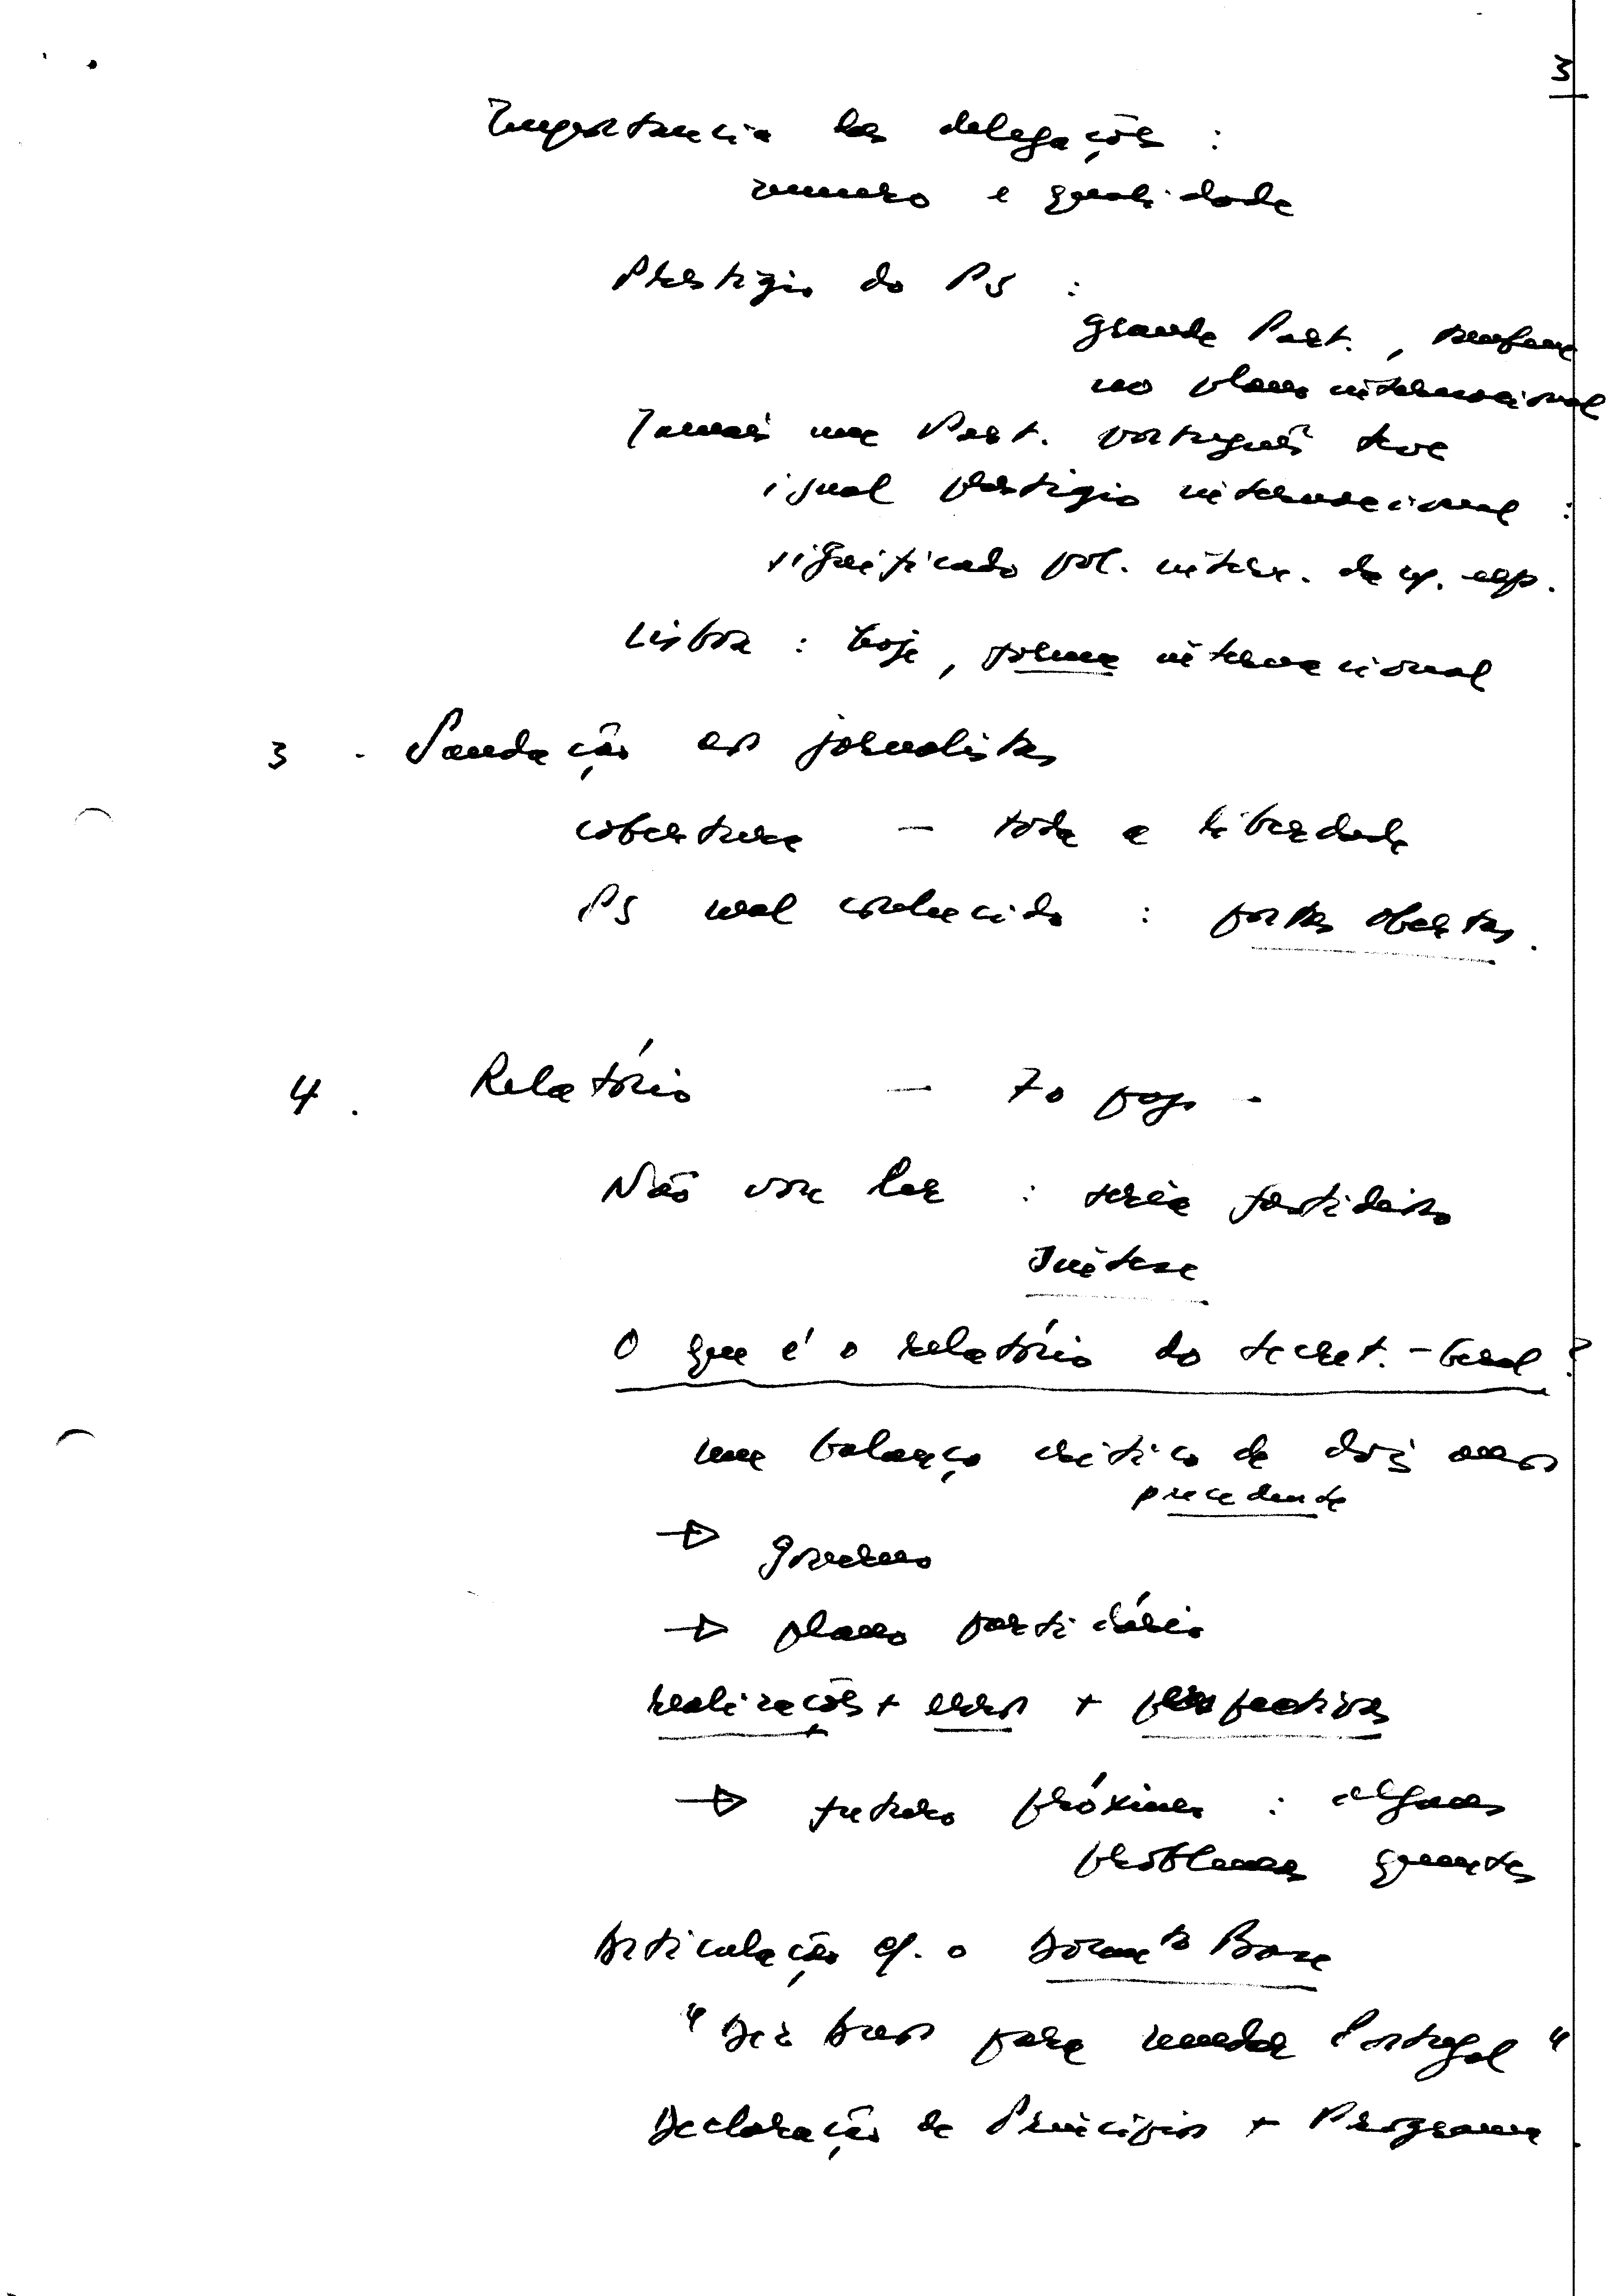 3
Importancia das delegações :
numero e qualidade
Prestigio do PS :
grande Part., mesmo
no plano internacional
Jamais um Part. português teve
igual prestigio internacional :
significado pol. intern. da
Lisboa : hoje, forum internacional
3 - Saudação aos jornalistas
cobertura — toda a liberdade
PS mal conhecido : portas abertas.
4. Relatório — 70 pags -
Não vou ler : seria fastidioso
Síntese
O que é o relatório do Secret.-Geral ?
um balanço critico de dois anos
precedente
→ governo
→ plano partidário
realizações + erros + perspectivas
→ futuro próximo : alguns
problemas quentes
Articulação c/. o Docum.to Base
"Dez Anos para mudar Portugal"
Declaração de Princípios + Programa.